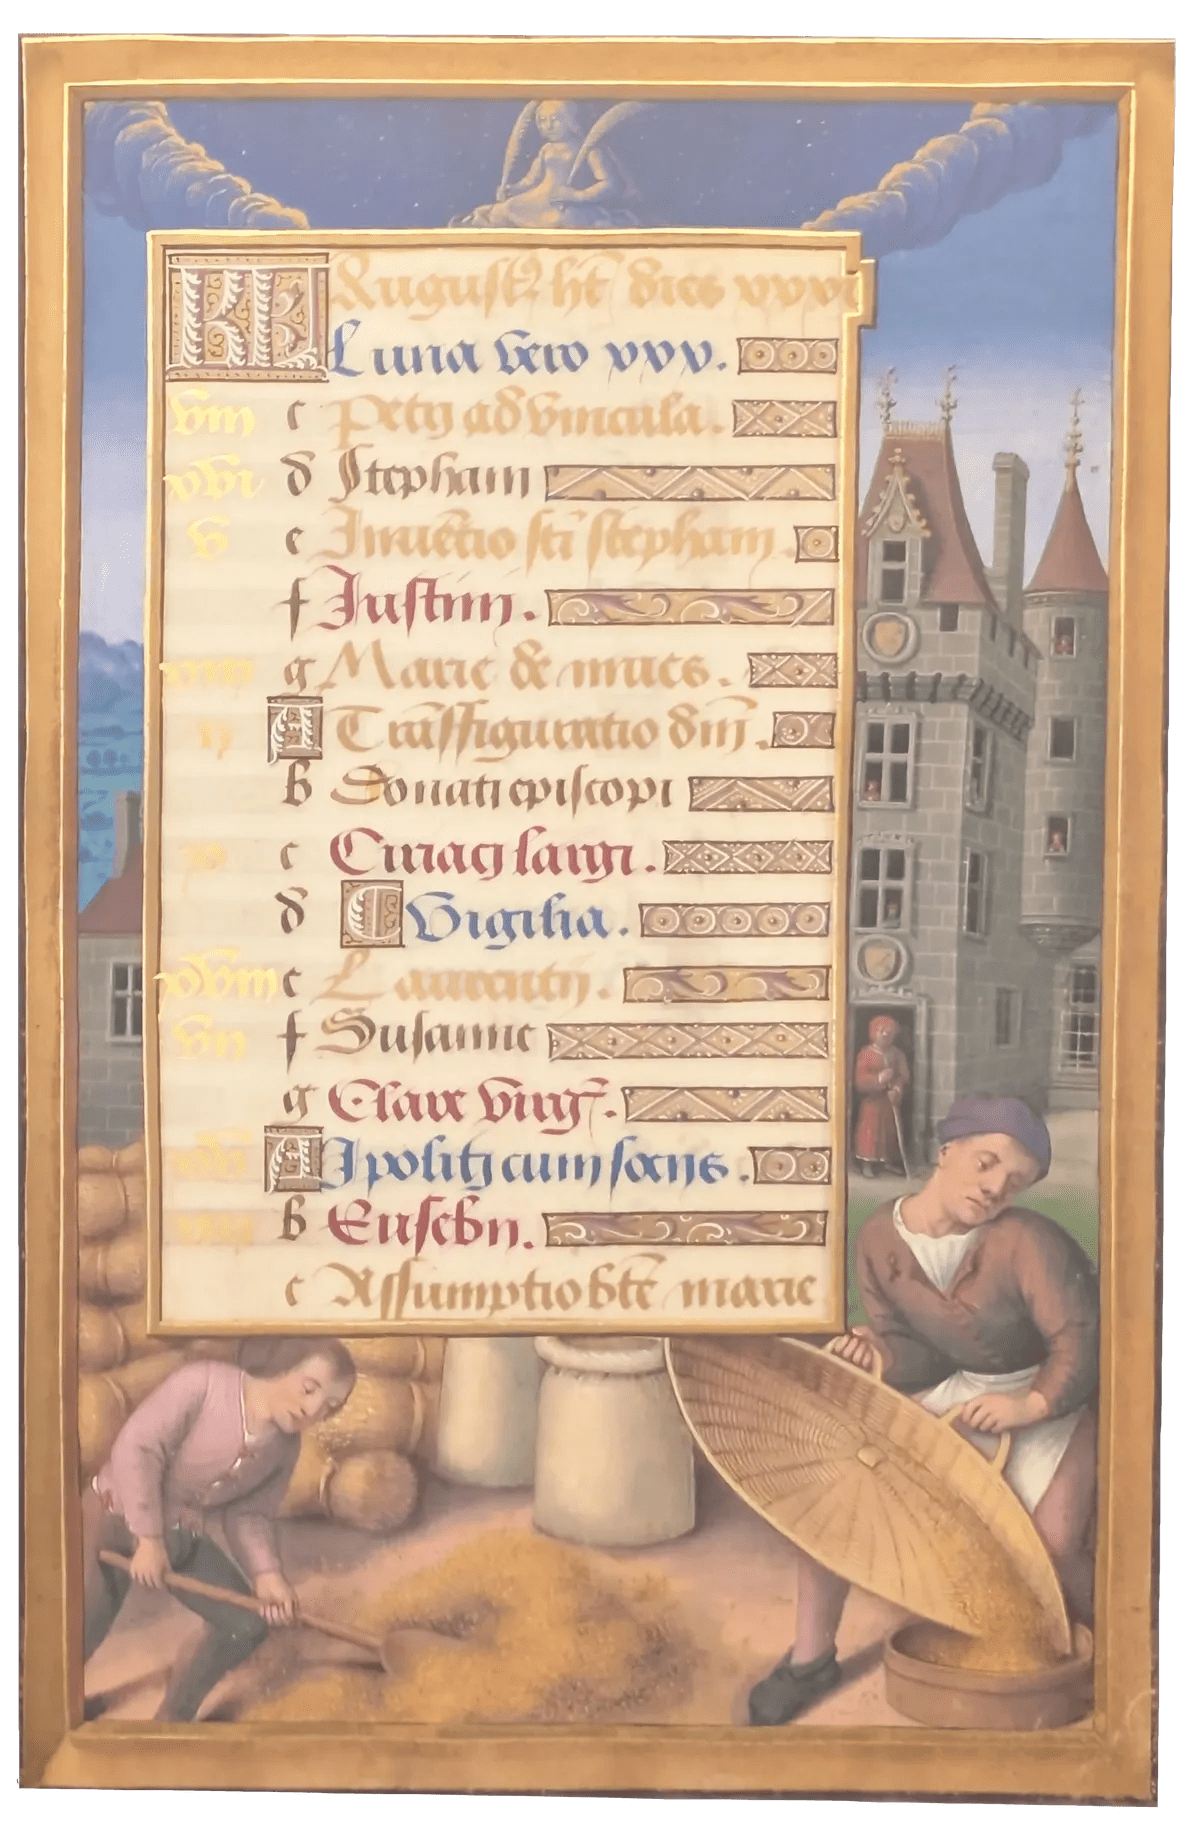 KL August9 ht dies xxxi
Luna vero xxx.
viii c Petri ad vincula.
xvi d Stephani
v e Inuētio sci stephani
f Iustini.
xiii g Marie de niues.
ii A Trāsfiguratio dni.
b Donati episcopi
x c Ciriaci largi.
d Vigilia.
xviii e Laurentij.
vii f Susanne
g Clare virg.
xv A Ipoliti cum socijs.
iiii b Eusebij.
c Assumptio bte marie